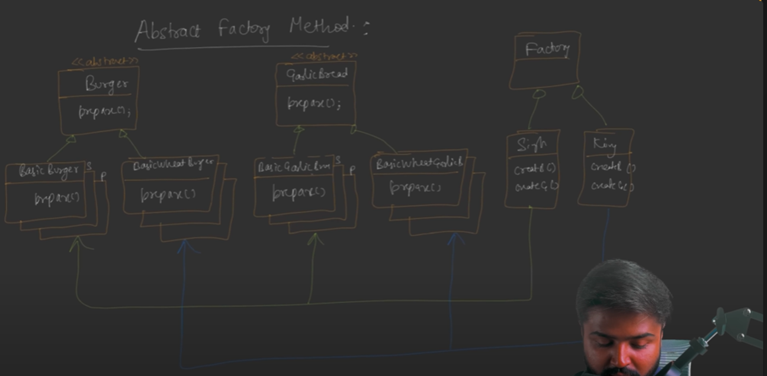 Abstract Factory Method :
<<abstract>>
Burger
prepare();
<<abstract>>
GarlicBread
prepare();
Factory
BasicBurger S P
prepare()
BasicWheatBurger
prepare()
BasicGarlicBread S P
prepare()
BasicWheatGarlicB
prepare()
Singh
createB()
createG()
King
createB()
createG()